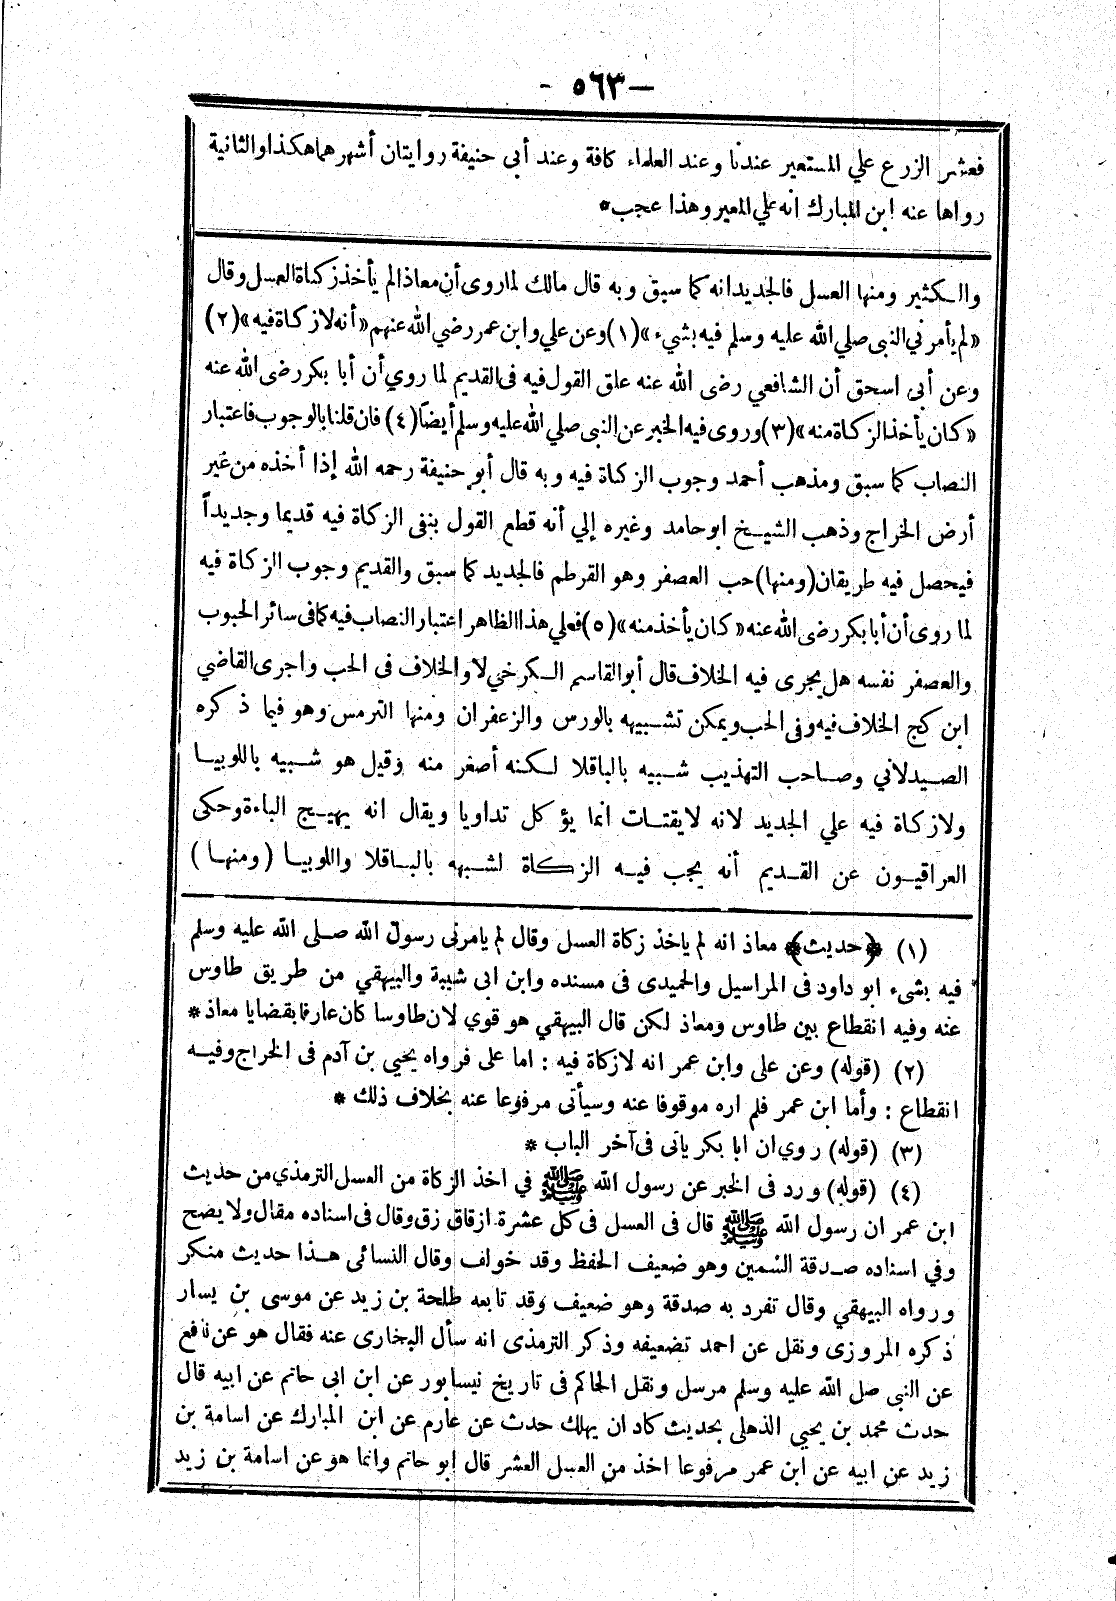 — ٥٦٣ -
فعشر الزرع علي المستعير عندنا وعند العلماء كافة وعند أبي حنيفة روايتان أشهرهما هكذا والثانية
رواها عنه ابن المبارك انه علي المعير وهذا عجب*
والكثير ومنها العسل فالجديد انه كما سبق وبه قال مالك لما روى أن معاذا لم يأخذ زكاة العسل وقال
«لم يأمرني النبى صلي الله عليه وسلم فيه بشيء» (١) وعن علي وابن عمر رضي الله عنهم «أنه لا زكاة فيه» (٢)
وعن أبى اسحق أن الشافعي رضى الله عنه علق القول فيه فى القديم لما روي أن أبا بكر رضى الله عنه
«كان يأخذ الزكاة منه» (٣) وروى فيه الخبر عن النبى صلي الله عليه وسلم أيضاً (٤) فان قلنا بالوجوب فاعتبار
النصاب كما سبق ومذهب أحمد وجوب الزكاة فيه وبه قال أبو حنيفة رحمه الله إذا أخذه من غير
أرض الخراج وذهب الشيخ ابو حامد وغيره إلي أنه قطع القول بنفى الزكاة فيه قديما وجديداً
فيحصل فيه طريقان (ومنها) حب العصفر وهو القرطم فالجديد كما سبق والقديم وجوب الزكاة فيه
لما روى أن أبا بكر رضى الله عنه «كان يأخذ منه» (٥) فعلي هذا الظاهر اعتبار النصاب فيه كما فى سائر الحبوب
والعصفر نفسه هل يجرى فيه الخلاف قال أبو القاسم الكرخي لا والخلاف فى الحب واجرى القاضي
ابن كج الخلاف فيه وفى الحب ويمكن تشبيهه بالورس والزعفران ومنها الترمس وهو فيما ذكره
الصيدلاني وصاحب التهذيب شبيه بالباقلا لكنه أصغر منه وقيل هو شبيه باللوبيا
ولا زكاة فيه علي الجديد لانه لا يقتات انما يؤكل تداويا ويقال انه يهيج الباءة وحكى
العراقيون عن القديم أنه يجب فيه الزكاة لشبهه بالباقلا واللوبيا (ومنها)
(١) ﴿حديث﴾ معاذ انه لم ياخذ زكاة العسل وقال لم يامرنى رسول الله صلى الله عليه وسلم
فيه بشىء ابو داود فى المراسيل والحميدى فى مسنده وابن ابى شيبة والبيهقي من طريق طاوس
عنه وفيه انقطاع بين طاوس ومعاذ لكن قال البيهقي هو قوي لان طاوسا كان عارفا بقضايا معاذ *
(٢) (قوله) وعن على وابن عمر انه لا زكاة فيه : اما على فرواه يحيي بن آدم فى الخراج وفيه
انقطاع : وأما ابن عمر فلم اره موقوفا عنه وسيأتى مرفوعا عنه بخلاف ذلك *
(٣) (قوله) روي ان ابا بكر ياتى فى آخر الباب *
(٤) (قوله) ورد فى الخبر عن رسول الله ﷺ في اخذ الزكاة من العسل الترمذي من حديث
ابن عمر ان رسول الله ﷺ قال فى العسل فى كل عشرة ازقاق زق وقال فى اسناده مقال ولا يصح
وفي اسناده صدقة السمين وهو ضعيف الحفظ وقد خولف وقال النسائى هذا حديث منكر
ورواه البيهقي وقال تفرد به صدقة وهو ضعيف وقد تابعه طلحة بن زيد عن موسى بن يسار
ذكره المروزى ونقل عن احمد تضعيفه وذكر الترمذى انه سأل البخارى عنه فقال هو عن نافع
عن النبى صل الله عليه وسلم مرسل ونقل الحاكم فى تاريخ نيسابور عن ابن ابى حاتم عن ابيه قال
حدث محمد بن يحيي الذهلى بحديث كاد ان يهلك حدث عن عارم عن ابن المبارك عن اسامة بن
زيد عن ابيه عن ابن عمر مرفوعا اخذ من العسل العشر قال ابو حاتم وانما هو عن اسامة بن زيد